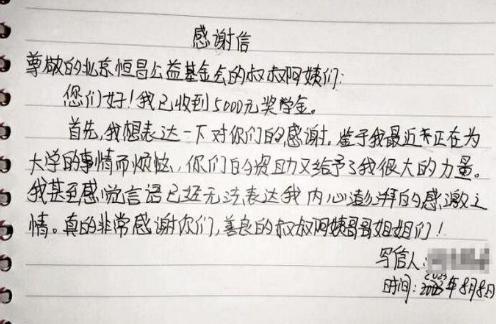 感谢信
尊敬的北京恒昌公益基金会的叔叔阿姨们:
您们好!我已收到5000元奖学金。
首先,我想表达一下对你们的感谢。鉴于我最近正在为
大学的事情而烦忧,你们的资助又给予了我很大的力量。
我甚至感觉言语已经无法表达我内心澎湃的感激之
情。真的非常感谢你们,善良的叔叔阿姨哥哥姐姐们!
写信人:
时间:2023年8月8日